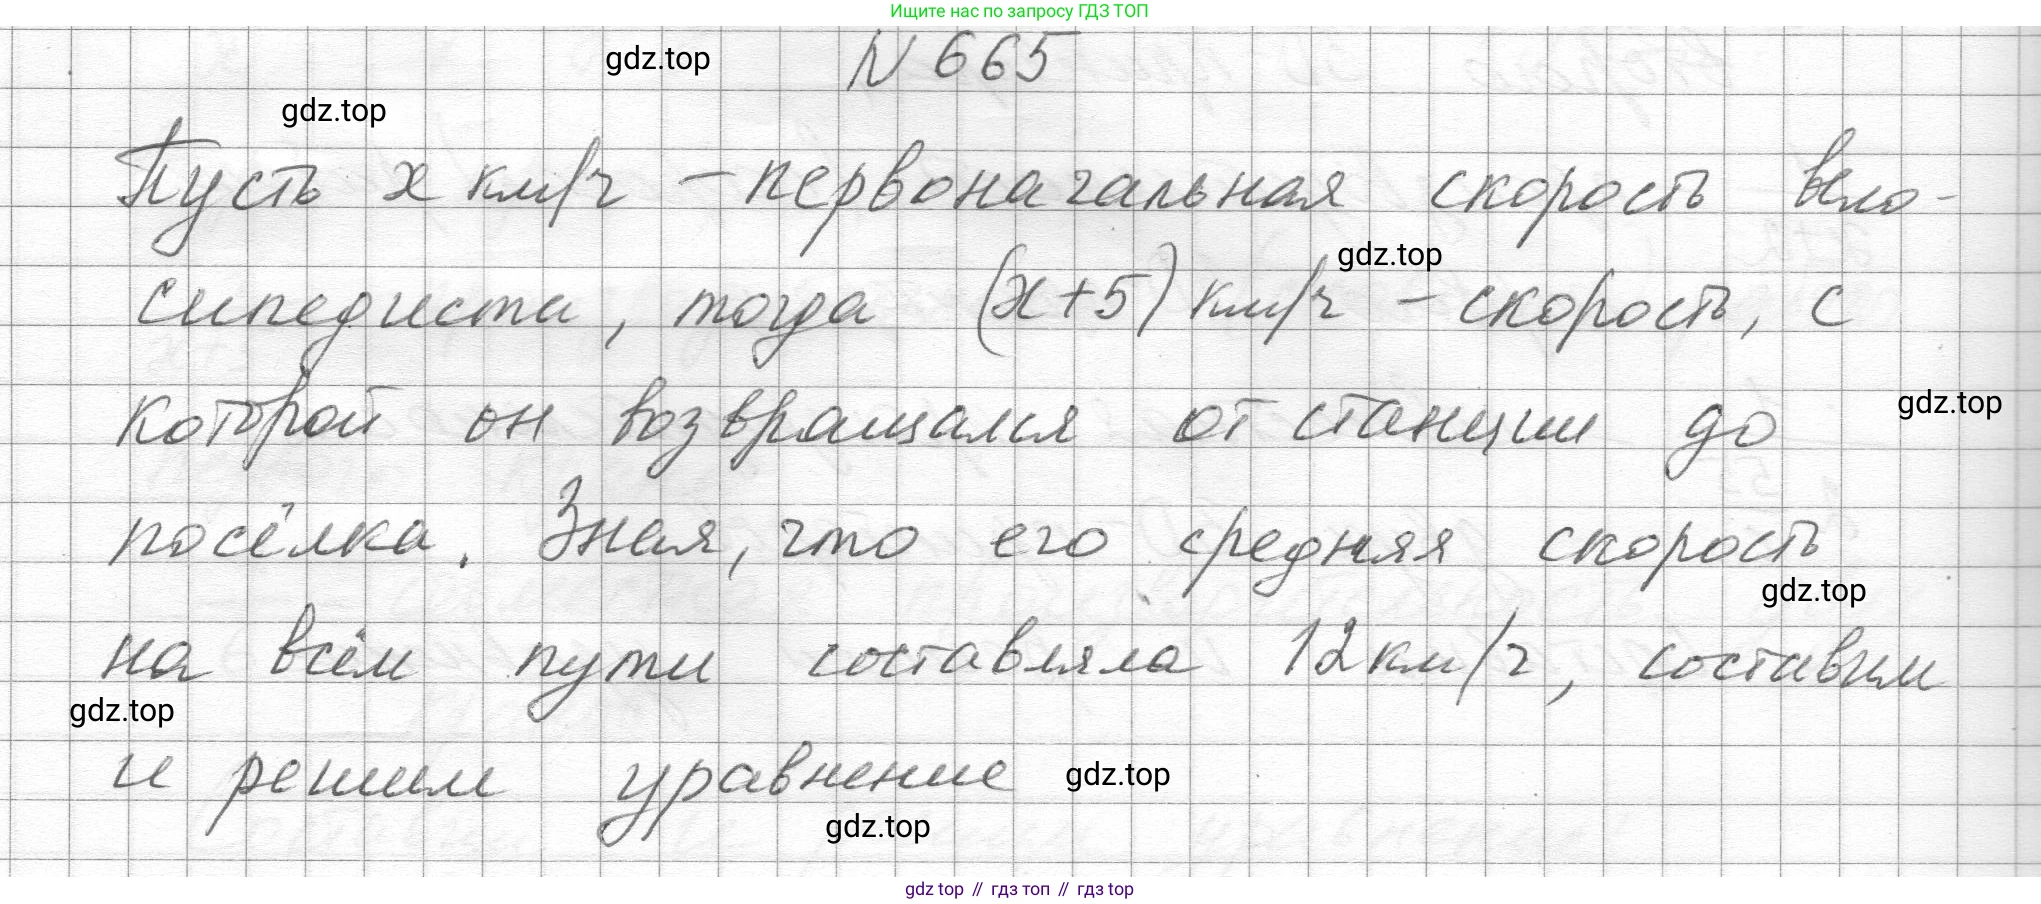 Ищите нас по запросу ГДЗ ТОП
gdz.top
N 665
gdz.top
Пусть x км/ч – первоначальная скорость вело-
gdz.top
сипедиста, тогда (x+5) км/ч – скорость, с
которой он возвращался от станции до
gdz.top
посёлка. Зная, что его средняя скорость
gdz.top
на всём пути составляла 12 км/ч, составим
gdz.top
и решим уравнение
gdz.top
gdz.top
gdz top // гдз топ // гдз top